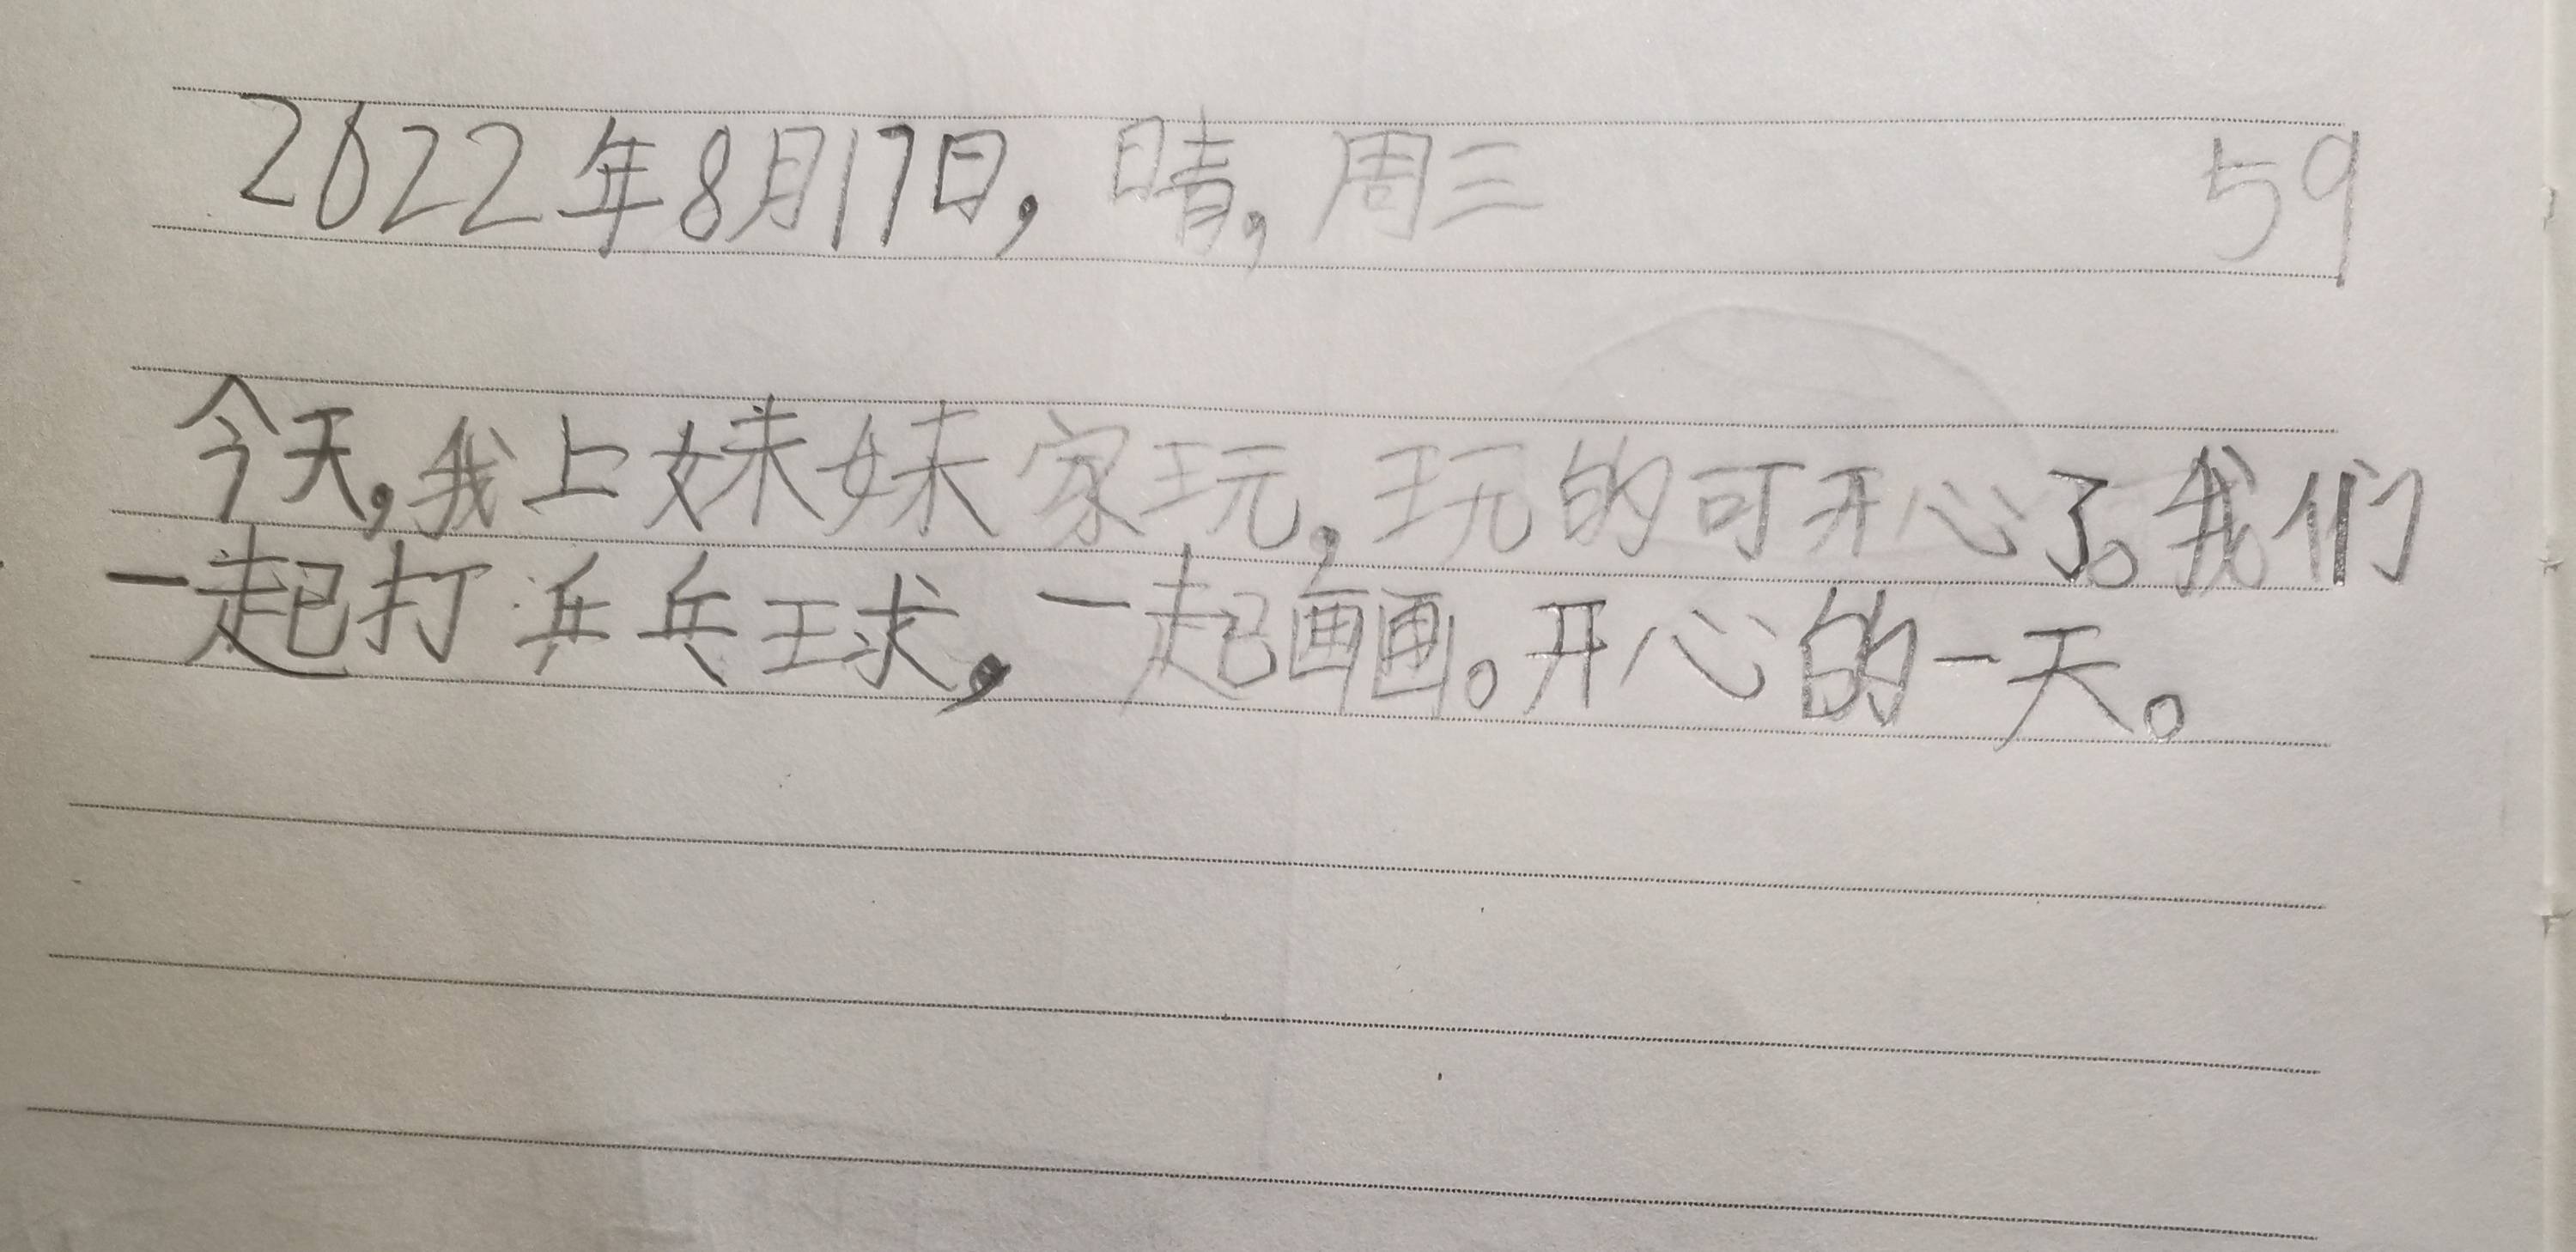 2022年8月17日，晴，周三 59
今天，我上妹妹家玩，玩的可开心了。我们
一起打乒乓球，一起画画。开心的一天。